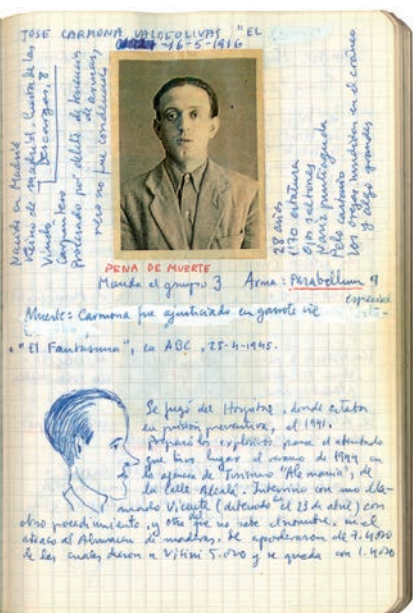 JOSE CARMONA VALDEOLIVAS "EL
16-5-1916
Nacido en Madrid
Vecino de Madrid, Cuesta de las
Descargas, 8
Viudo
Carpintero
Procesado por delito de tenencia
de armas,
mas no fue condenado
28 años
1,70 estatura
Ojos saltones
Nariz puntiaguda
Pelo castaño
los ojos hundidos en el cráneo
y algo grandes
PENA DE MUERTE
Manda el grupo 3 Arma: Parabellum 9
especial
Muerte: Carmona fue ajusticiado en garrote vil
"El Fantasma", en ABC, 25-4-1945.
Se fugó del Hospital, donde estaba
en prisión preventiva, el 1941.
Preparó los explosivos para el atentado
que tuvo lugar el verano de 1944 en
la agencia de Turismo "Alemania", de
la Calle Alcalá. Intervino con uno lla-
mado Vicente (detenido el 23 de abril) con
otro procedimiento, y otro del que no sabe el nombre, en el
atraco al Almacen de maderas. Se apoderaron de 7.400
de las cuales dieron a Vitini 5.000 y se queda con 1.400